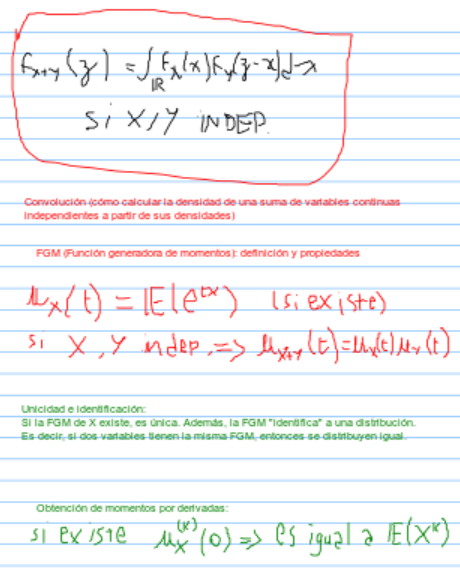 f_{X+Y}(z) = ∫_{ℝ} f_X(x) f_Y(z-x) dx
si X, Y INDEP.
Convolución (cómo calcular la densidad de una suma de variables continuas
independientes a partir de sus densidades)
FGM (Función generadora de momentos): definición y propiedades
μ_X(t) = 𝔼(e^{tX}) (si existe)
si X, Y indep. => μ_{X+Y}(t) = μ_X(t) μ_Y(t)
Unicidad e identificación:
Si la FGM de X existe, es única. Además, la FGM "identifica" a una distribución.
Es decir, si dos variables tienen la misma FGM, entonces se distribuyen igual.
Obtención de momentos por derivadas:
si existe μ_X^{(k)}(0) => es igual a 𝔼(X^k)